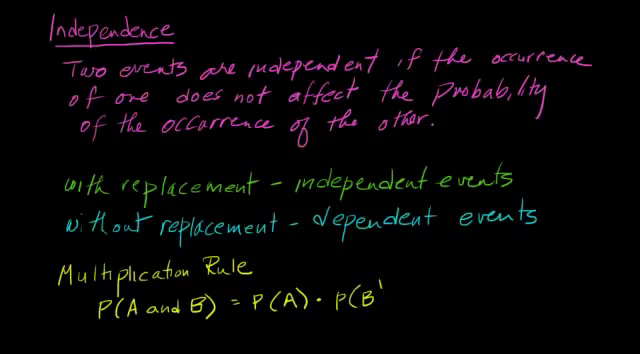 Independence
Two events are independent if the occurrence
of one does not affect the probability
of the occurrence of the other.
with replacement - independent events
without replacement - dependent events
Multiplication Rule
P(A and B) = P(A) · P(B'